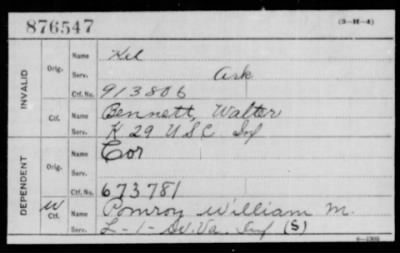 876547 (3-H-4)
INVALID
Orig. Name Kel
Serv. Ark
Ctf. No. 913806
Ctf. Name Bennett, Walter
Serv. K 29 U S C Inf
DEPENDENT
Orig. Name Cor
Serv.
Ctf. No. 673781
W Ctf. Name Pomroy William M.
Serv. L-1-W.Va. Inf (S)